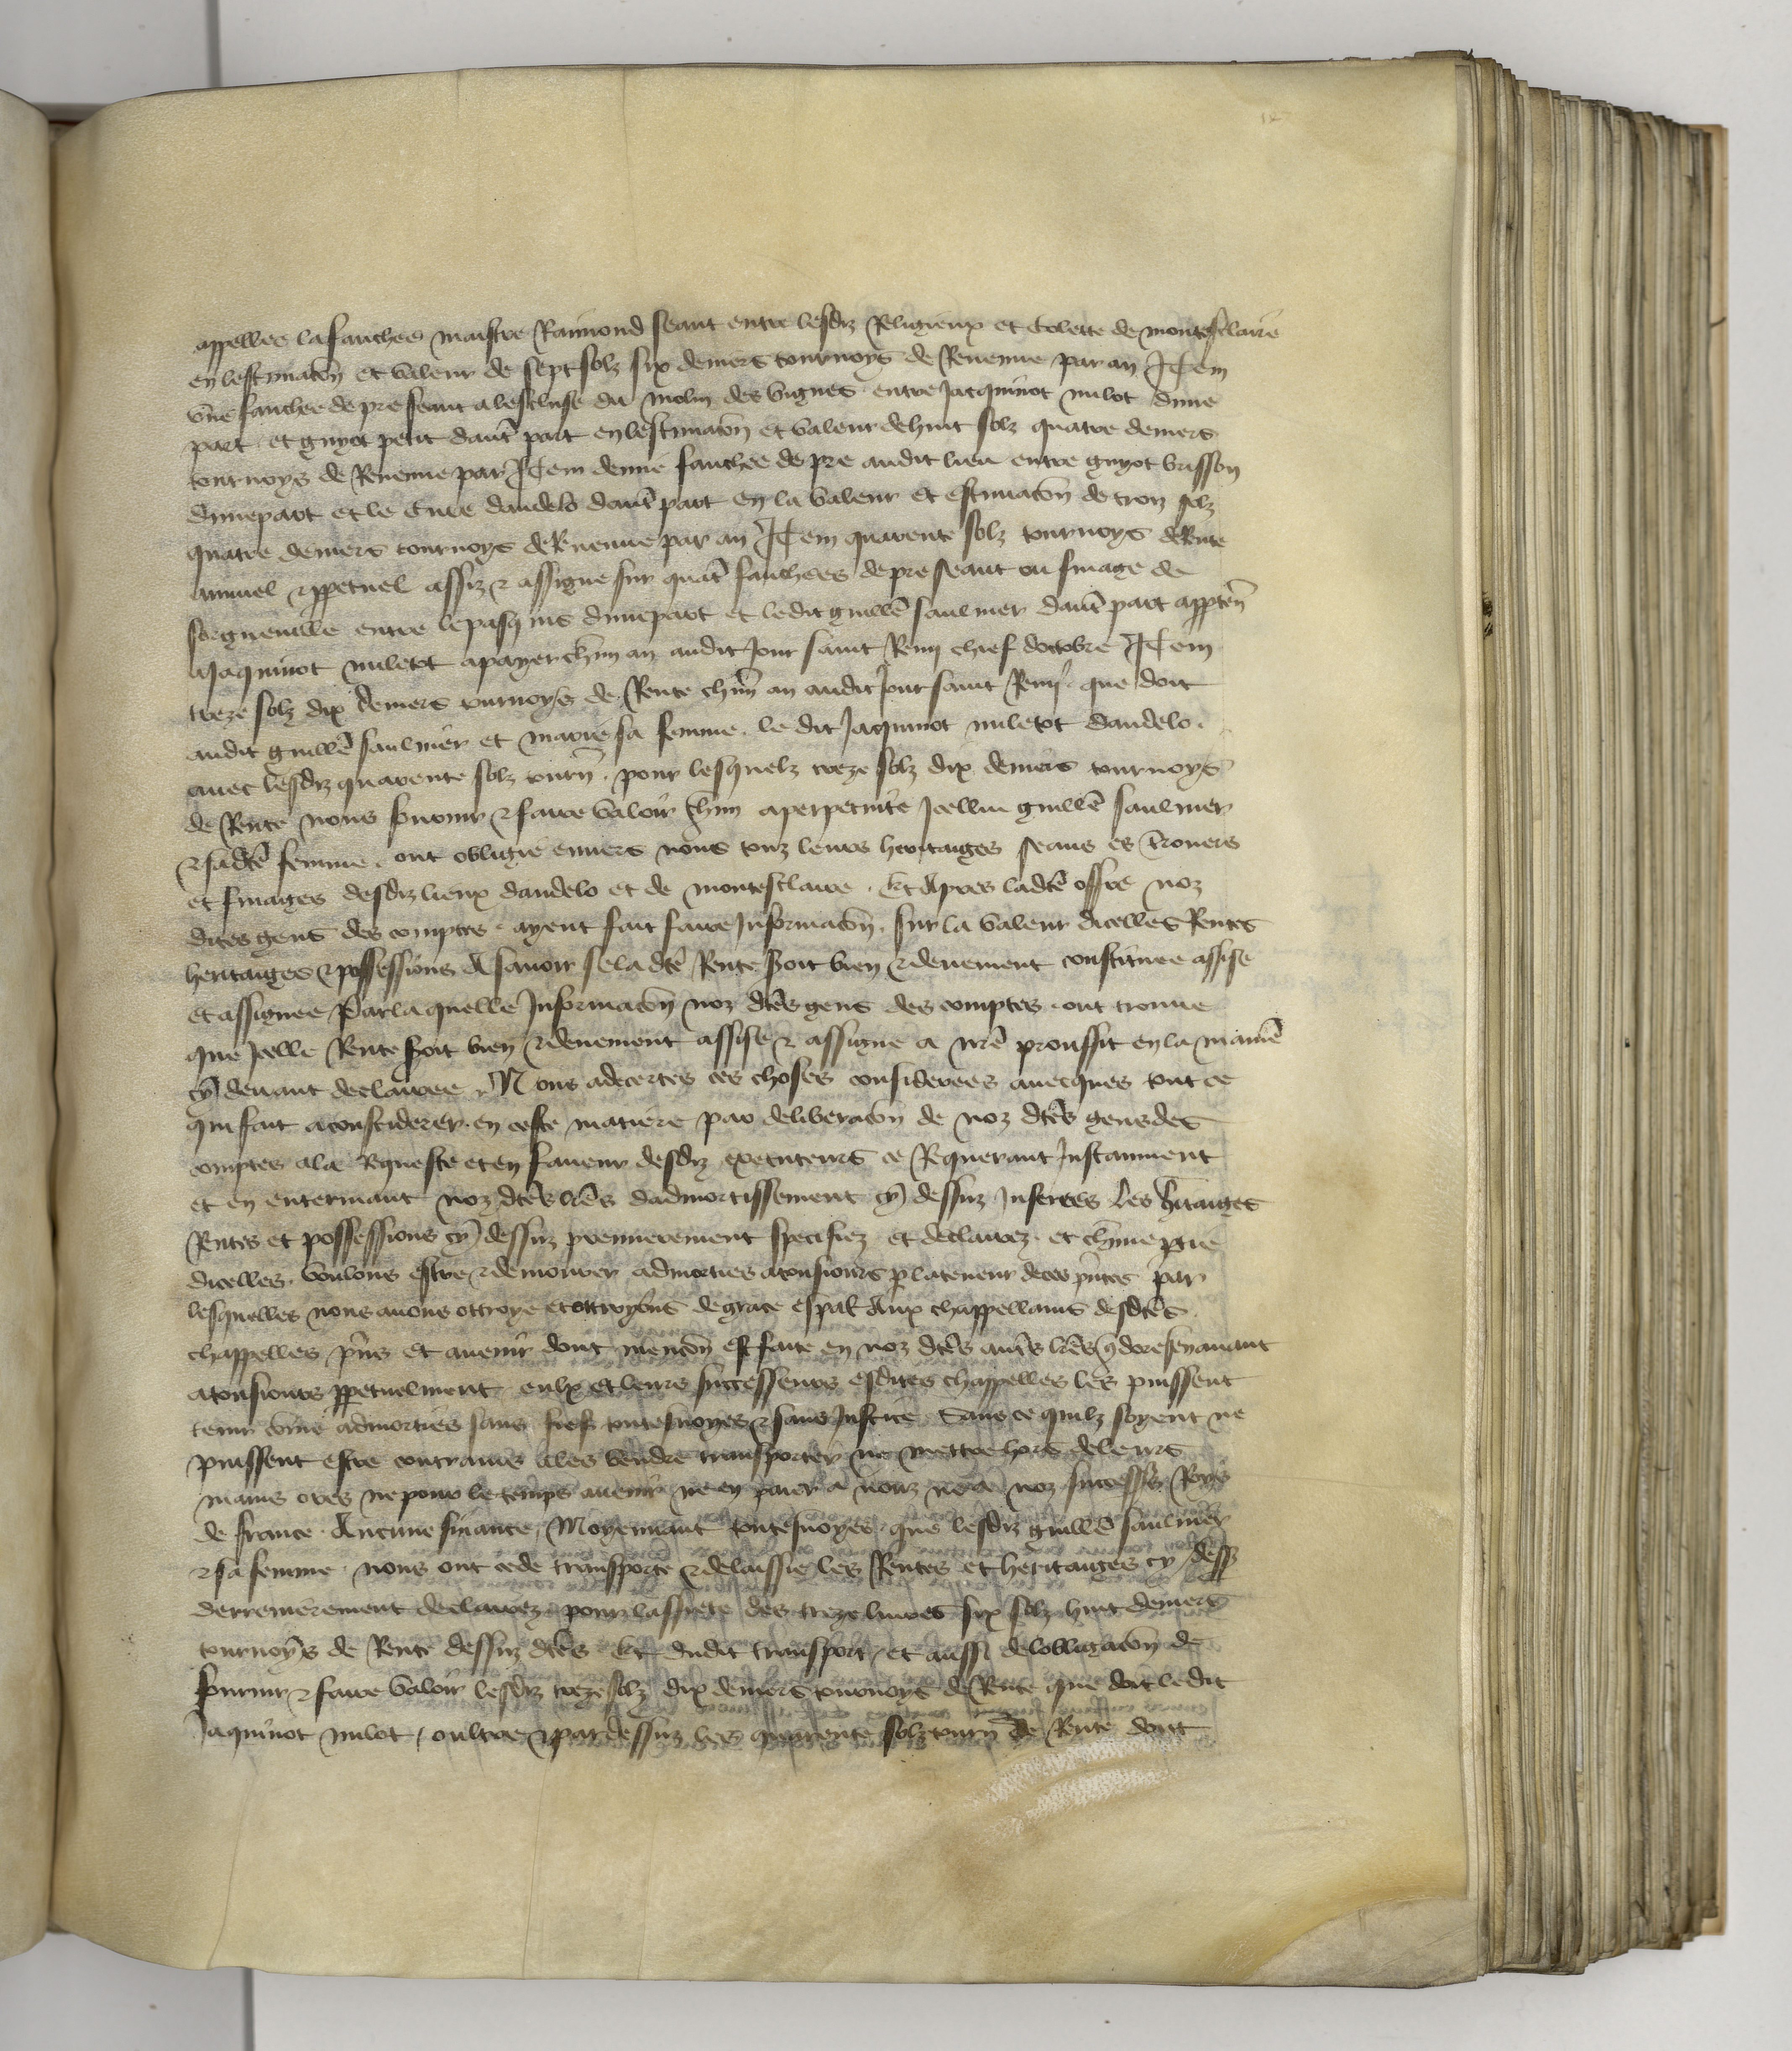 appellee la fauchee maistre Raimond seant entre lesdiz Religieux et Colette de montesclaire
en lestimacōn et valeur de sept solz six deniers tournoys de Revenue par an Item
vne fauchee de pre seant a lescluse du molin des vignes entre Jacquinot milot dune
part et guyot petit dautʳ part en lestimacōn et valeur de huit solz quatre deniers
tournoys de Revenue par Item demie fauchee de pre audit lieu entre guyot brisson
dune part et le Cure dandelo dautʳ part en la valeur et estimacōn de trois solz
quatre deniers tournoys de Revenue par an Item quarente solz tournoys de Rente
annuel ⁊ ppetuel assiz ⁊ assigne sur quatʳ fauchees de pre seant ou finage de
entre dune part et ledit guillē saulnier dautʳ part apptēn
Jaquinot miletot a payer chūn an audit Jour saint Remy chief doctobre Item
treze solz dix deniers tournoys de Rente chūn an audit Jour saint Remy que doit
audit guillē saulnier et marie sa femme le dit Jaquinot miletot dandelo
auec lesdiz quarente solz tourn̄ pour lesquelz treze solz dix deniers tournoys
de Rente nous fournir ⁊ faire valoir chūn a perpetuite Icellui guillē saulnier
⁊ sadcē femme ont obligie enuers nous touz leurs heritaiges seans es
et finages desdiz lieux dandelo et de montesclaire Et Apres ladcē offre noz
dites gens des comptes ayent fait faire Informacōn sur la valeur dicelles Rentes
heritaiges ⁊ possessions A sauoir se ladcē Rente soit bien ⁊ deuement constituee assise
et assignee Par laquelle Informacōn noz dcēs gens des comptes ont trouue
que Icelle Rente soit bien ⁊ deuement assise ⁊ assigne a nrē prouffit en la maniē
cy deuant declairee Nous adecertes ces choses considerees auecques tout ce
qui fait a considerer en ceste matiere par deliberacōn de noz dcēs gens des
comptes a la Requeste et en faueur desdiz executeurs ce Requerant Instamment
et en enterinant noz dcēs lrēs dadmortissement cy dessuz Inserees Les hītaiges
Rentes et possessions cy dessuz premierement specifiez et declairez et chūne ptie
dicelles voulons estre ⁊ demourer admorties a tousiours p la teneur de ces pn̄tes par
lesquelles nous auons ottroye et ottroyons de grace espāl Aux chappellains desdcēs
chappelles pn̄s et auenir dont mencōn est faite en noz dcēs autēs lrēs q̄ doresenauant
a tousiours ppetuelment eulx et leurs successeurs esdites chappelles les puissent
tenir cōme admorties sans fief toutesuoyes ⁊ sans Justice Sans ce quilz soyent ne
puissent estre contrains a les vendre transporter ne mettre hors de leurs
mains ores ne pour le temps auenir ne en paier a nouz ne a noz success̄rs Roys
de france Aucune finance Moyennant toutesuoyes que lesdiz guillē saulnier
⁊ sa femme nous ont cede transporte ⁊ delaissie les Rentes et heritaiges cy dess̄z
derrenierement declairez pour lassiete des treze liures six solz huit deniers
tournoys de Rente dessuz dcēs Et dudit transport et aussi de lobligacōn de
fournir ⁊ faire valoir lesdiz treze solz dix deniers tournoys de Rente que doit ledit
Jaquinot milot oultre ⁊ par dessuz les quarente solz tourn̄ de Rente dont